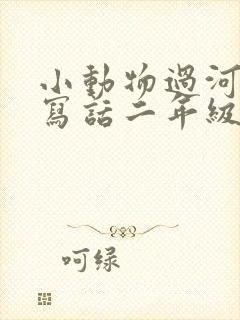 小動物過河
寫話二年級
呵绿